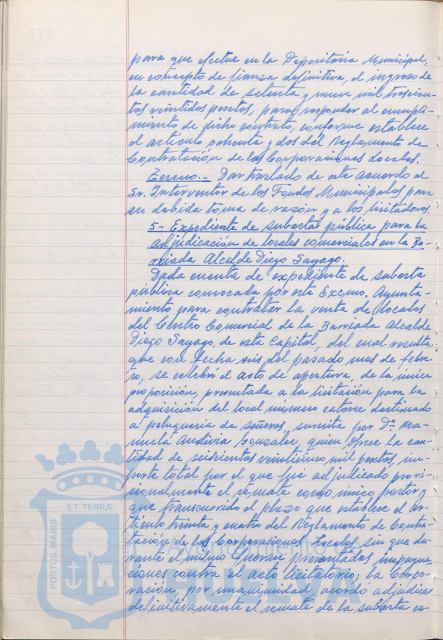 para que efectue en la Depositaría Municipal,
en concepto de fianza definitiva, el ingreso de
la cantidad de setenta y nueve mil trescien-
tos veintidos pesetas, para responder al cumpli-
miento de dicho contrato, conforme establece
el artículo ochenta y dos del Reglamento de
Contratación de las Corporaciones Locales.
Tercero.- Dar traslado de este acuerdo al
Sr. Interventor de los Fondos Municipales para
su debida toma de razón y a los licitadores.
5- Expediente de subasta pública para la
adjudicación de locales comerciales en la Ba-
rriada Alcalde Diego Sayago.
Dada cuenta de expediente de subasta
pública convocada por este Excmo. Ayunta-
miento para contratar la venta de locales
del Centro Comercial de la Barriada Alcalde
Diego Sayago, de esta Capital, del cual resulta
que con fecha seis del pasado mes de febre-
ro, se celebró el acto de apertura, de la única
proposición, presentada a la licitación para la
adquisición del local número catorce destinado
a peluqueria de señoras, suscrita por Dª Ma-
nuela González, quien ofrece la can-
tidad de seiscientas veintiuno mil pesetas, im-
porte total por el que fué adjudicado provi-
sionalmente el remate como único postor y
que transcurrido el plazo que establece el ar-
tículo treinta y cuatro del Reglamento de Contra-
tación de las Corporaciones Locales, sin que du-
rante el mismo fueran presentadas impugna-
ciones contra el acto licitatorio; la Corpo-
ración, por unanimidad, acordó adjudicar
definitivamente el remate de la subasta ce-
PORTUS MARIS
ET TERRÆ
Ayuntamiento de